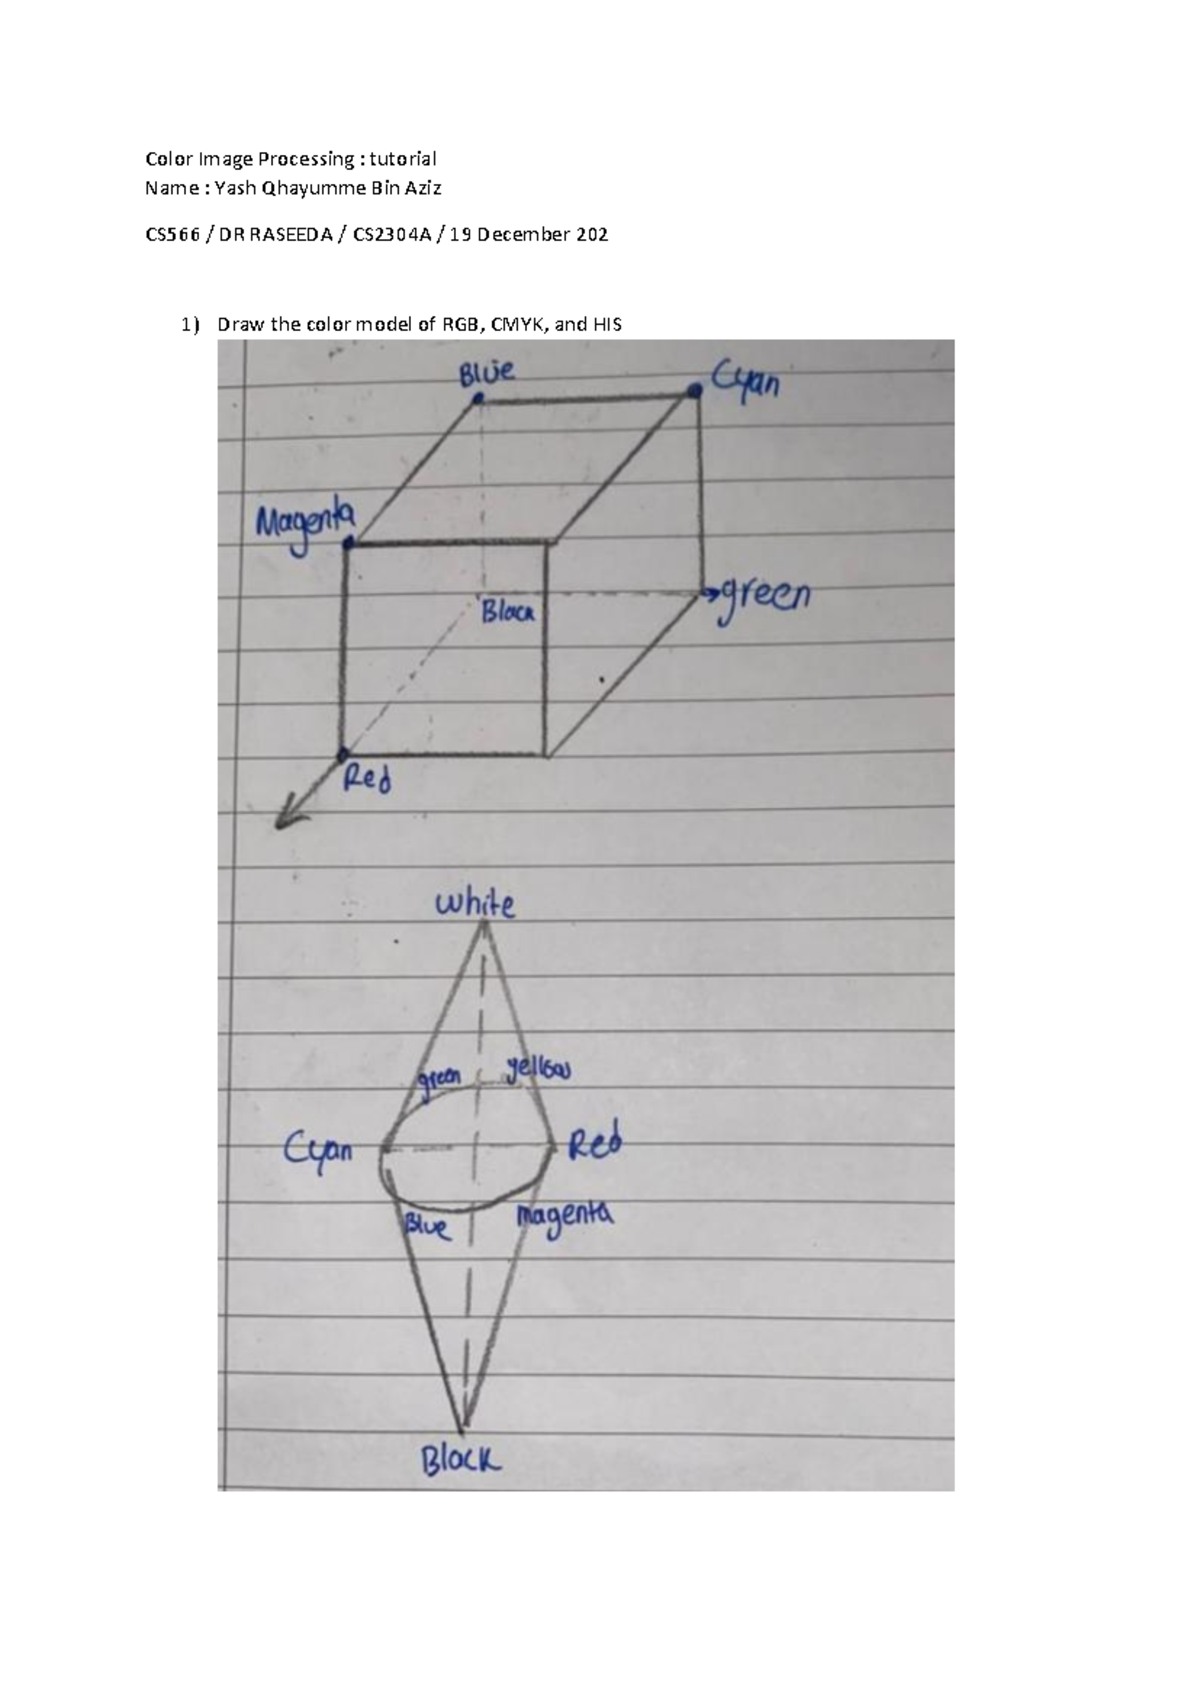 Color Image Processing : tutorial
Name : Yash Qhayumme Bin Aziz
CS566 / DR RASEEDA / CS2304A / 19 December 202
1) Draw the color model of RGB, CMYK, and HIS
Blue
Cyan
Magenta
Black
green
Red
White
green
yellow
Cyan
Red
Blue
magenta
Black